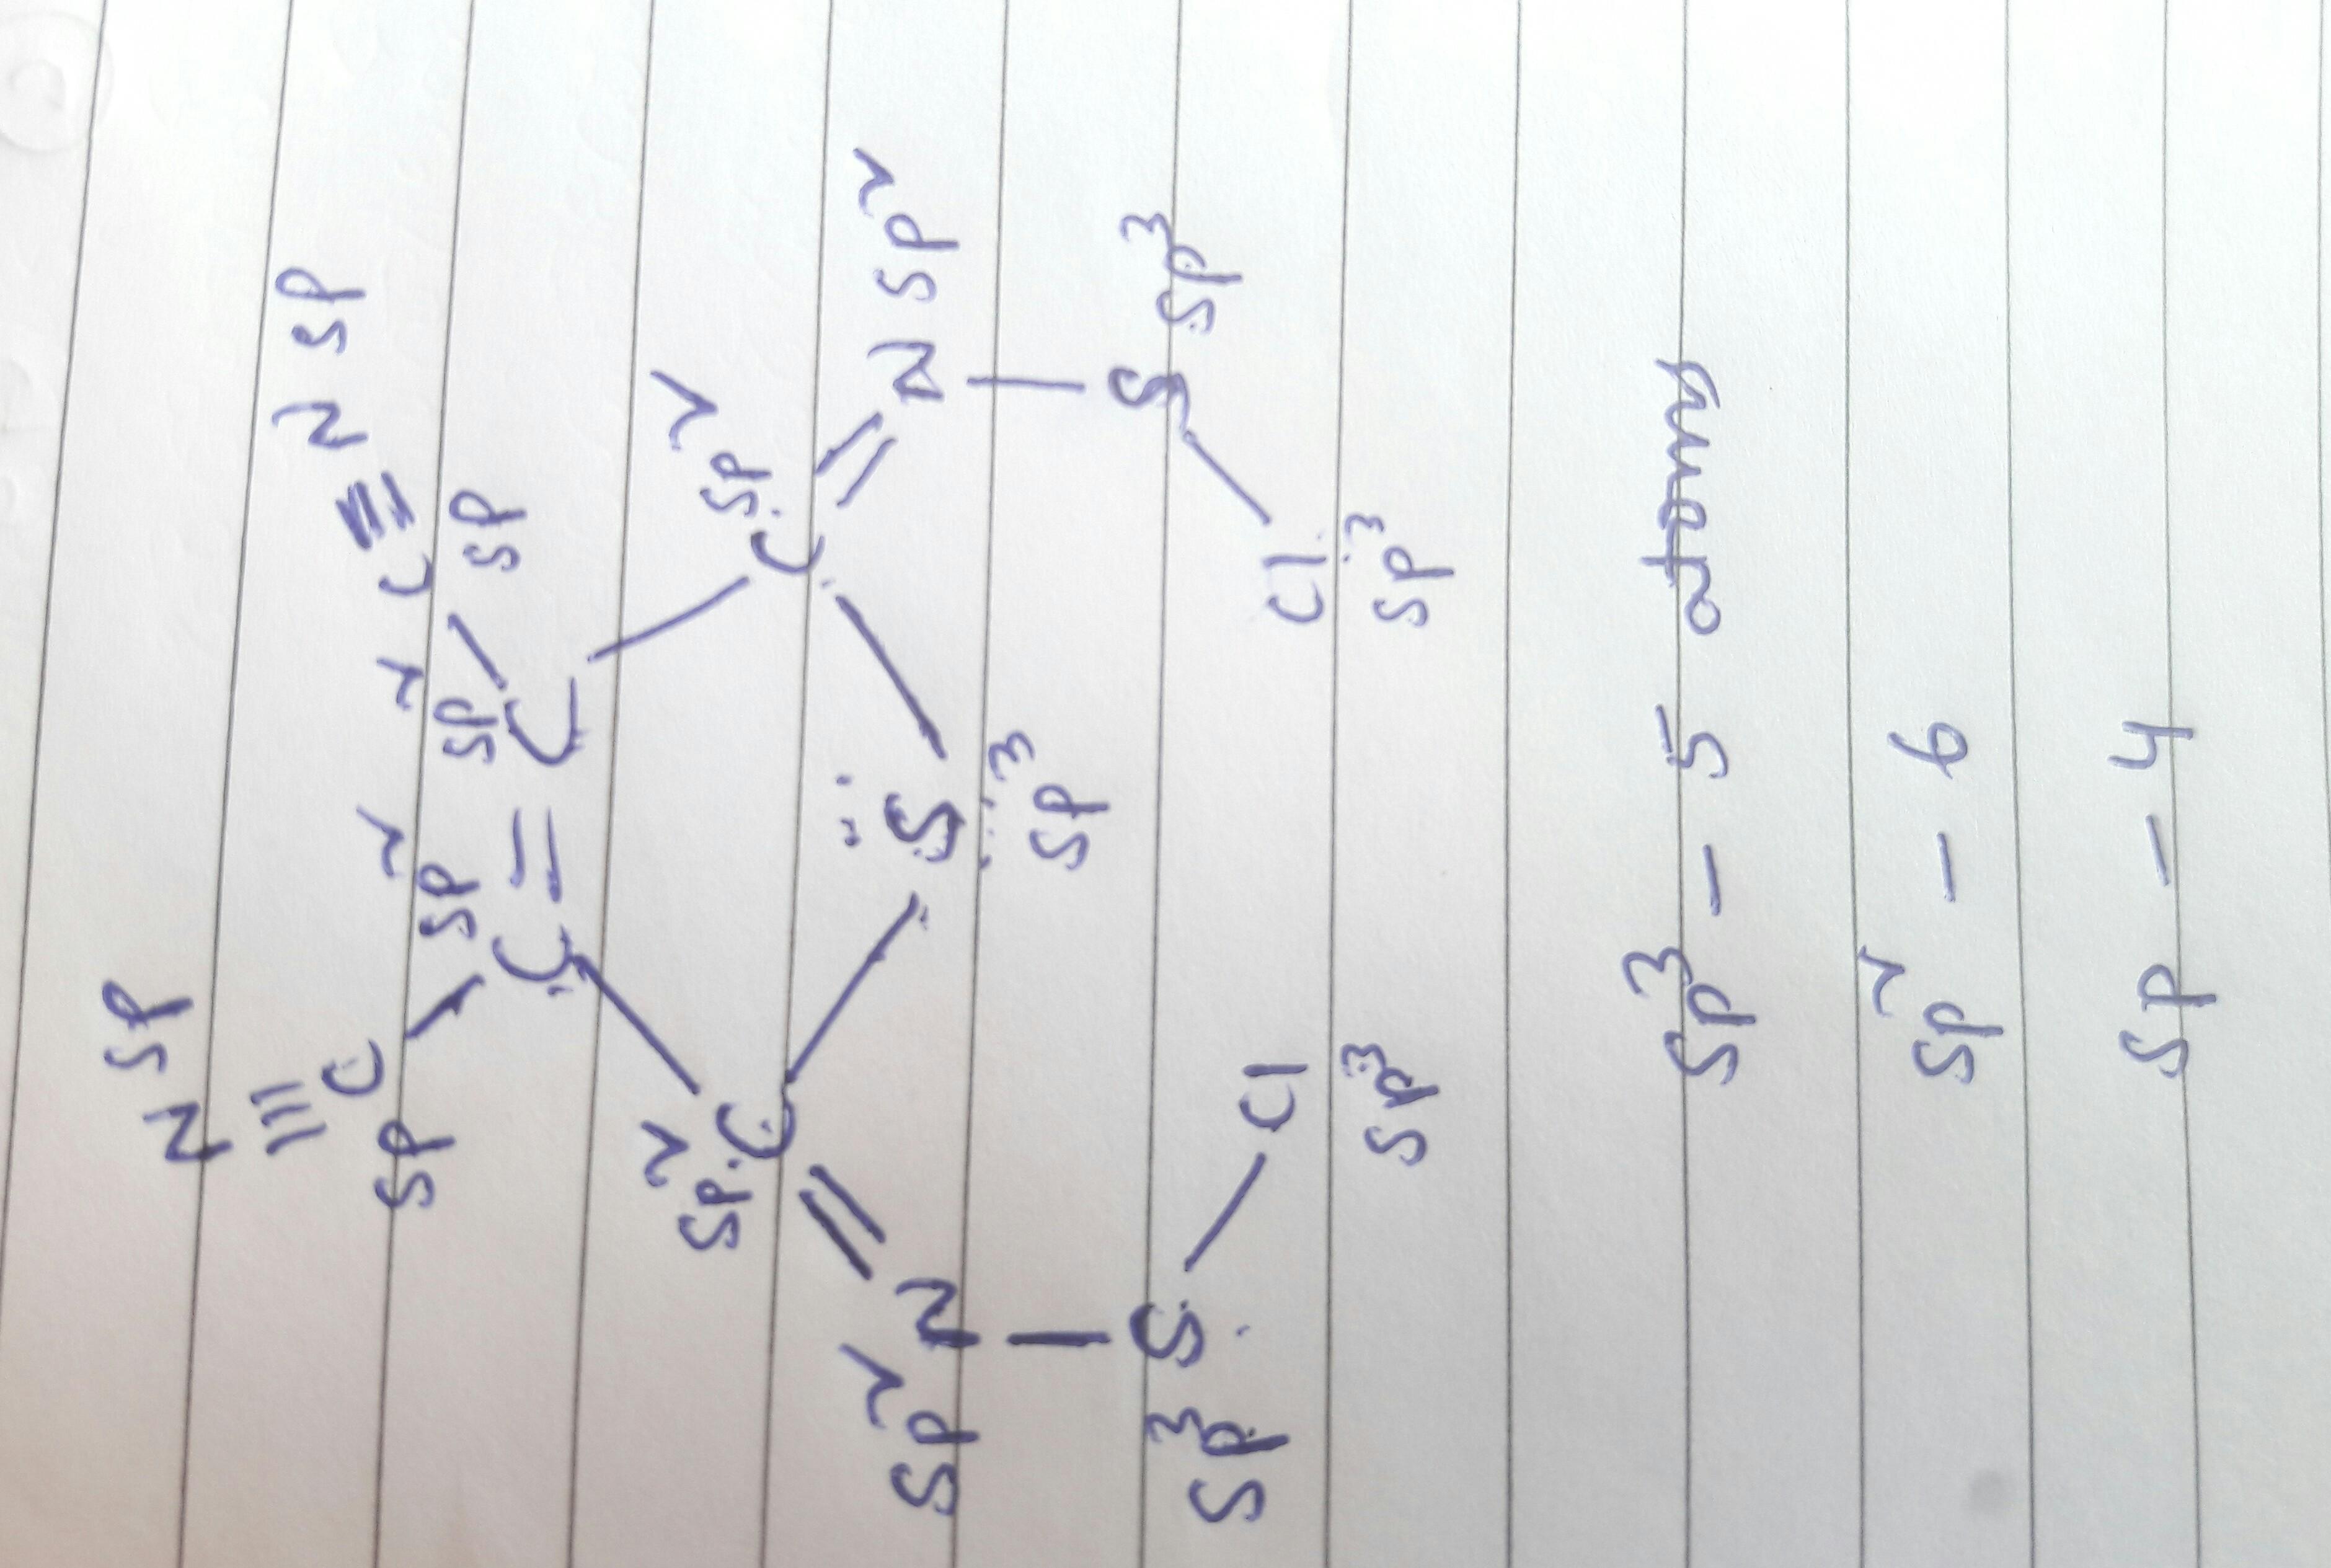 N sp
≡ N sp
sp C C ≡
sp² sp² sp
C = C
sp² C C sp²
sp² N = S = N sp²
sp³
sp³ S S sp³
Cl Cl
sp³ sp³
sp³ - 5 atom
sp² - 6
sp - 4